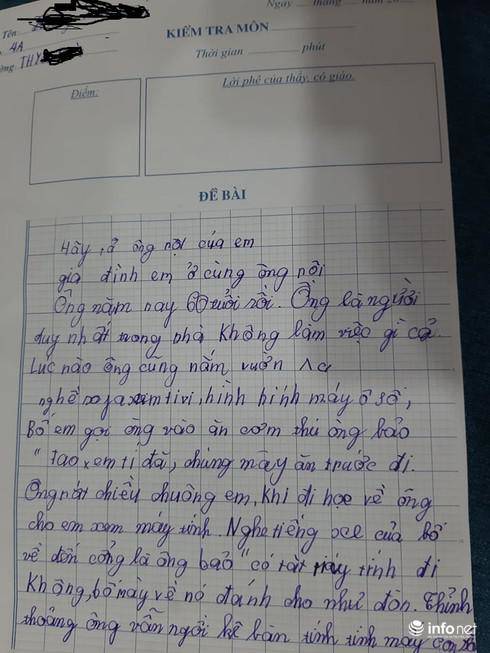 Ngày ...... tháng ...... năm 20
Tên
KIỂM TRA MÔN
4A
Thời gian ............ phút
THY
Điểm:
Lời phê của thầy, cô giáo.
ĐỀ BÀI
Hãy tả ông nội của em
gia đình em ở cùng ông nội
Ông năm nay 60 tuổi rồi. Ông là người
duy nhất trong nhà không làm việc gì cả.
Lúc nào ông cũng nằm vườn ra
nghề xem tivi, hình hình máy ô số,
Bố em gọi ông vào ăn cơm thì ông bảo
"Tao xem tí đã, chúng mày ăn trước đi.
Ông rất chiều chuộng em, khi đi học về ông
cho em xem máy tính. Nghe tiếng xe của bố
về đến cổng là ông bảo "có tắt máy tính đi
Không, bố mày về nó đánh cho như đòn. Thỉnh
thoảng ông vẫn ngồi kê bàn tính tính mấy con
infonet
infonet.vn